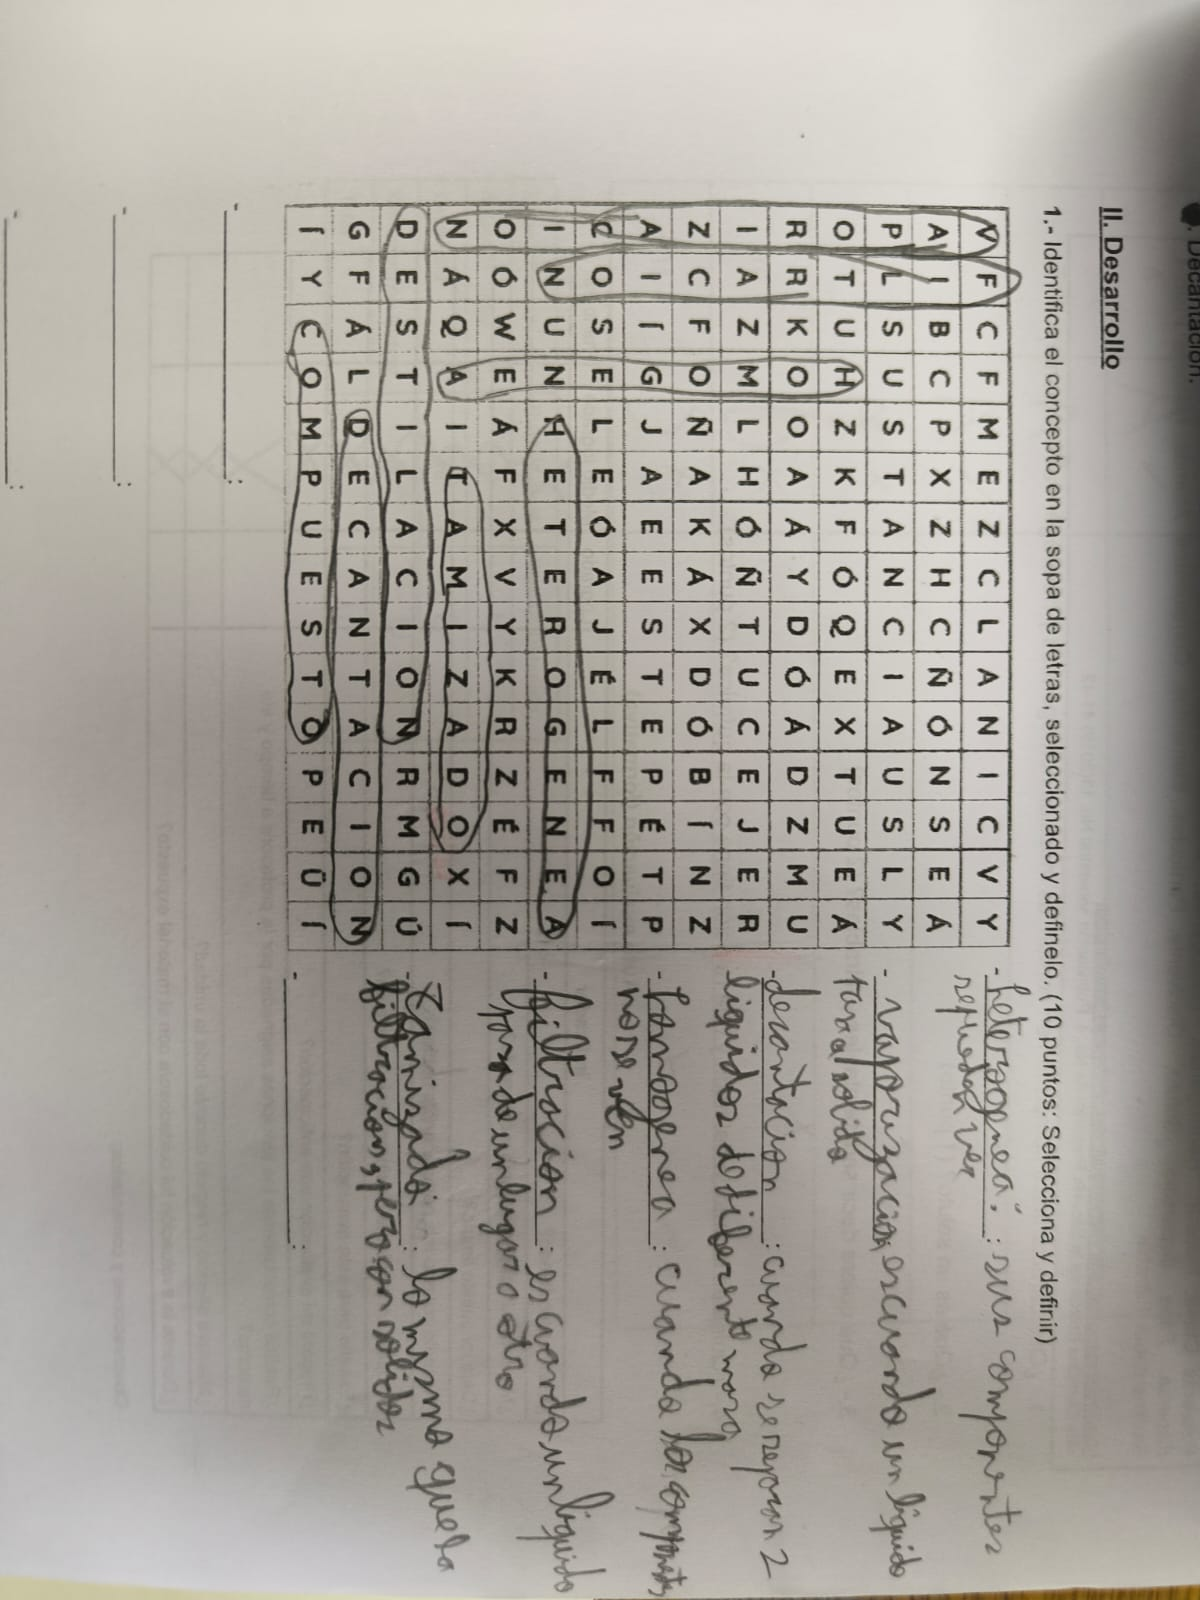 . Decantación.
II. Desarrollo
1.- Identifica el concepto en la sopa de letras, seleccionado y definelo. (10 puntos: Selecciona y definir)
V F C F M E Z C L A N I C V Y
A I B C P X Z H C Ñ Ó N S E Á
P L S U S T A N C I A U S L Y
O T U H Z K F Ó Q E X T U E Á
R R K O O A Á Y D Ó Á D Z M U
I A Z M L H Ó Ñ T U C E J E R
Z C F O Ñ A K Á X D Ó B Í N Z
A I Í G J A E E S T E P É T P
C O S E L E Ó A J É L F F O Í
I N U N H E T E R O G E N E A
O Ó W E Á F X V Y K R Z É F Z
N Á Q A I T A M I Z A D O X Í
D E S T I L A C I O N R M G Ú
G F Á L D E C A N T A C I O N
Í Y C O M P U E S T O P E Ü Í
- heterogenea : sus componentes
se pueden ver
- vaporizacion es cuando un liquido
pasa a solido
- decantacion : cuando se separan 2
liquidos de diferente masa
- homogenea : cuando los componentes
no se ven
- filtracion : es cuando un liquido
pasa de un lugar a otro
- tamizado : lo mismo que la
filtracion, pero con solidos
- :
- :
- :
- :